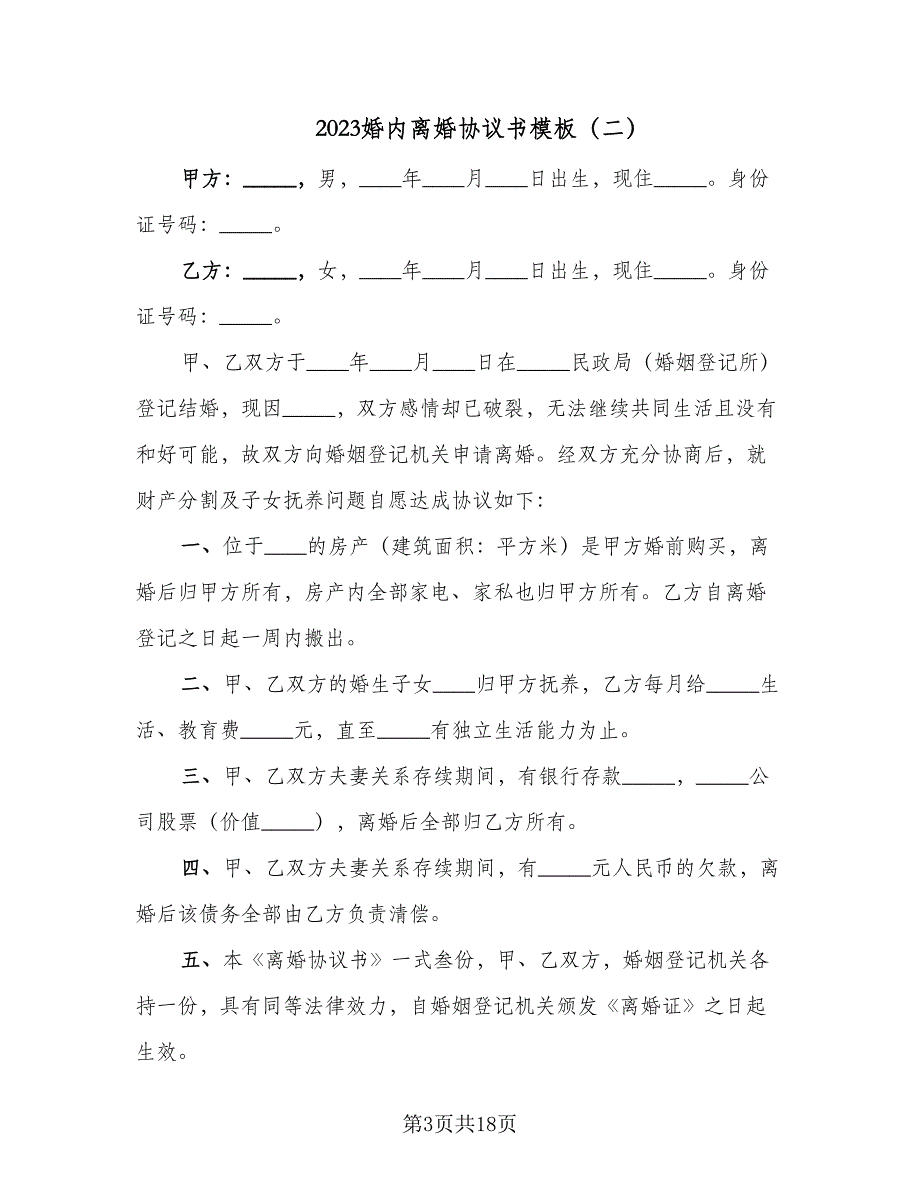 2023婚内离婚协议书模板（二）
甲方：_____，男，____年____月____日出生，现住_____。身份
证号码：_____。
乙方：_____，女，____年____月____日出生，现住_____。身份
证号码：_____。
甲、乙双方于____年____月____日在_____民政局（婚姻登记所）
登记结婚，现因_____，双方感情却已破裂，无法继续共同生活且没有
和好可能，故双方向婚姻登记机关申请离婚。经双方充分协商后，就
财产分割及子女抚养问题自愿达成协议如下：
一、位于____的房产（建筑面积：平方米）是甲方婚前购买，离
婚后归甲方所有，房产内全部家电、家私也归甲方所有。乙方自离婚
登记之日起一周内搬出。
二、甲、乙双方的婚生子女____归甲方抚养，乙方每月给_____生
活、教育费_____元，直至_____有独立生活能力为止。
三、甲、乙双方夫妻关系存续期间，有银行存款_____，_____公
司股票（价值_____），离婚后全部归乙方所有。
四、甲、乙双方夫妻关系存续期间，有_____元人民币的欠款，离
婚后该债务全部由乙方负责清偿。
五、本《离婚协议书》一式叁份，甲、乙双方，婚姻登记机关各
持一份，具有同等法律效力，自婚姻登记机关颁发《离婚证》之日起
生效。
第3页共18页